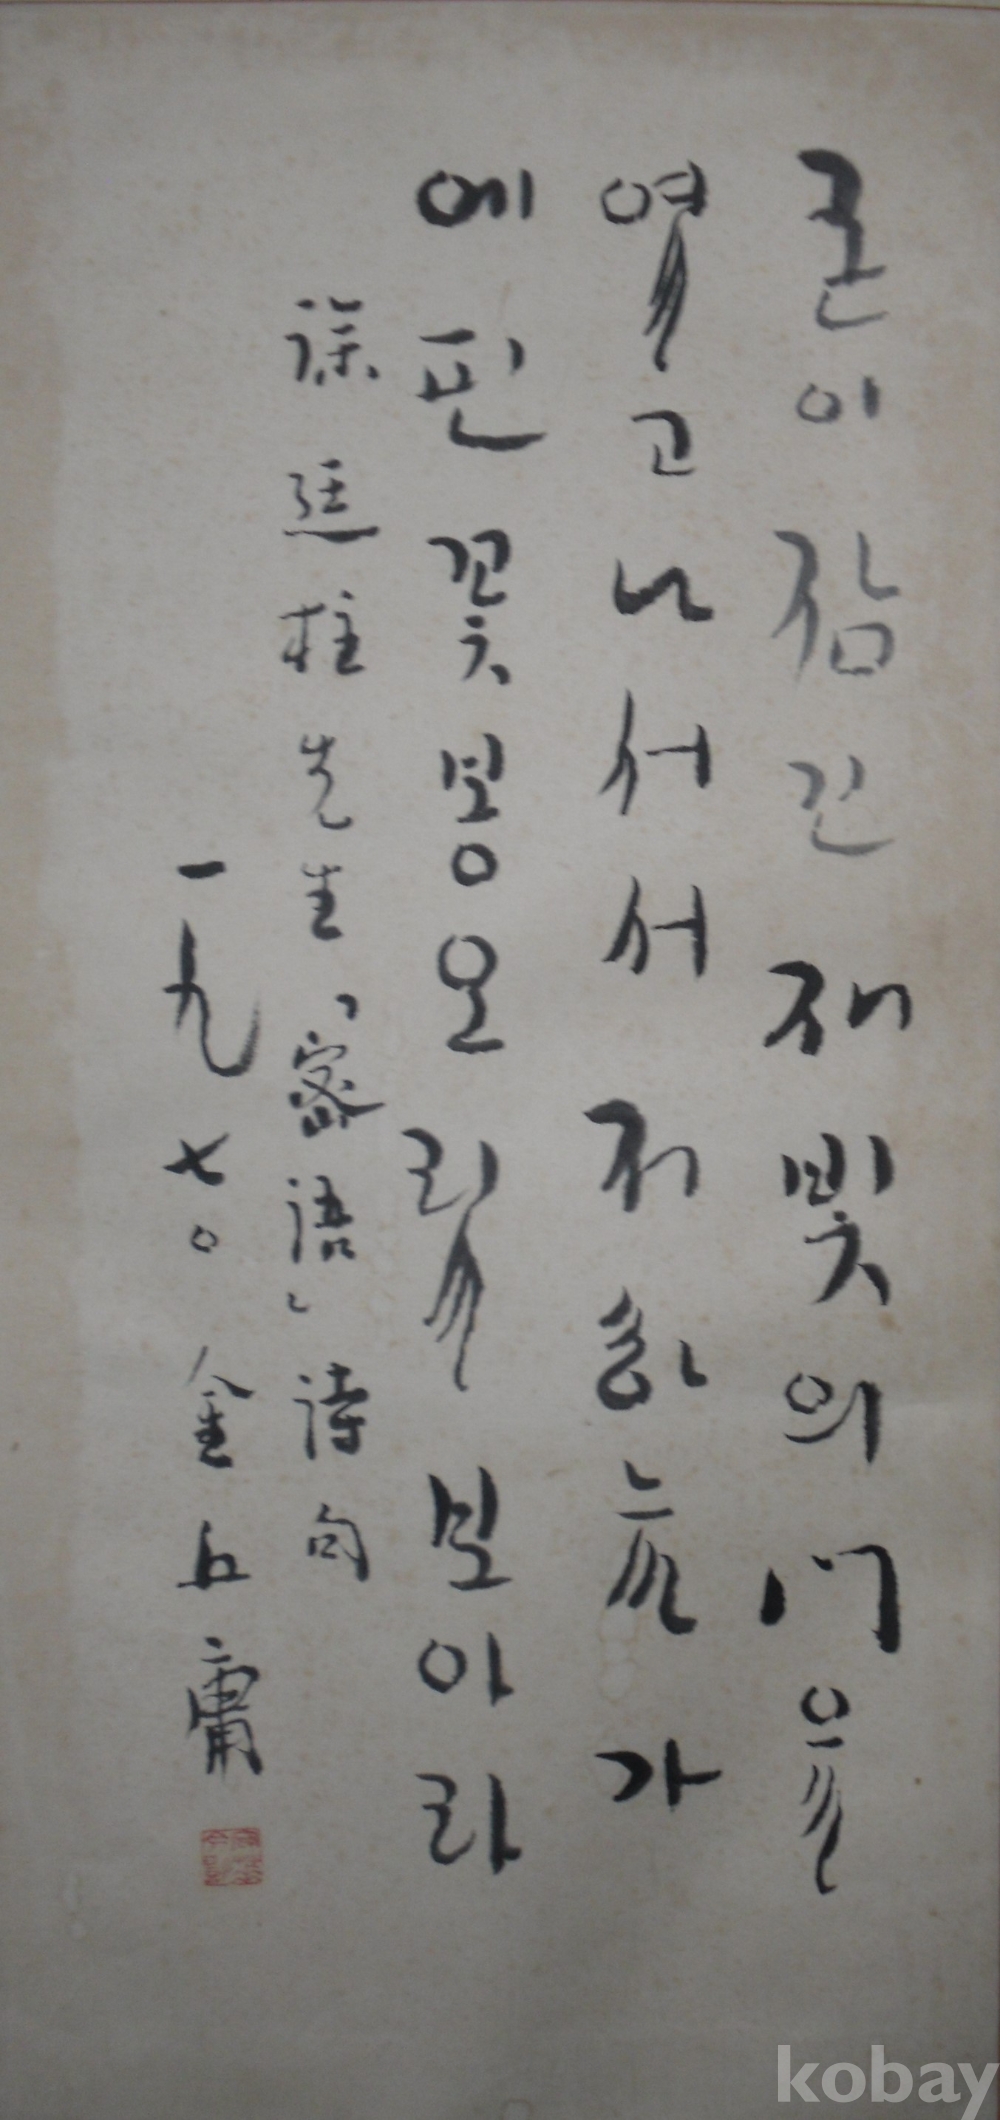 굳이 잠긴 재빛의 門을
열고 나서서 저 하늘가
에 핀 꽃봉오릴 보아라
徐廷柱先生「密語」詩句
一九七〇 金丘庸
kobay